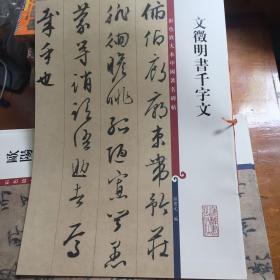 文徵明書千字文
彩色放大本中國著名碑帖
俯仰廊廟束帶矜莊
徘徊瞻眺孤陋寡聞愚
蒙等誚謂語助者焉
哉乎也